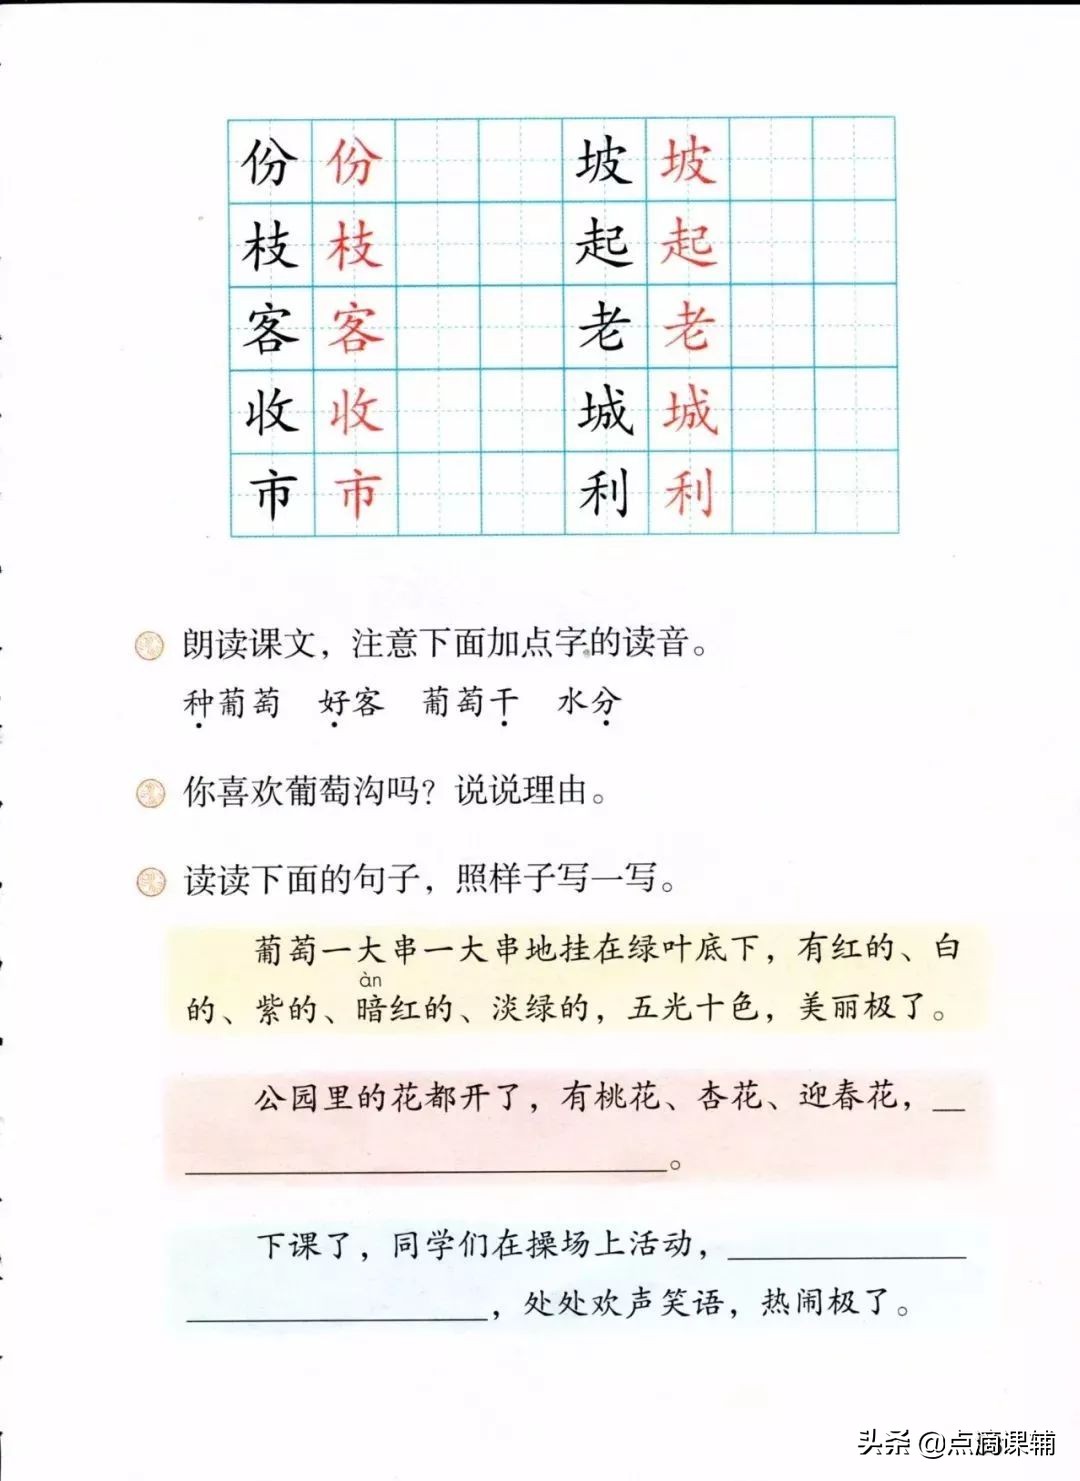 份 份 坡 坡
枝 枝 起 起
客 客 老 老
收 收 城 城
市 市 利 利
朗读课文，注意下面加点字的读音。
种葡萄 好客 葡萄干 水分
你喜欢葡萄沟吗？说说理由。
读读下面的句子，照样子写一写。
葡萄一大串一大串地挂在绿叶底下，有红的、白
àn
的、紫的、暗红的、淡绿的，五光十色，美丽极了。
公园里的花都开了，有桃花、杏花、迎春花，__
______________。
下课了，同学们在操场上活动，______________
______________，处处欢声笑语，热闹极了。
头条 @点滴课辅